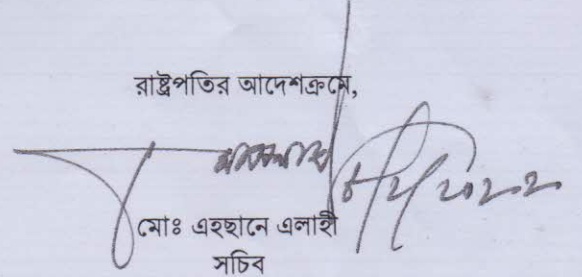 রাষ্ট্রপতির আদেশক্রমে,
মোঃ এহছানে এলাহী
সচিব